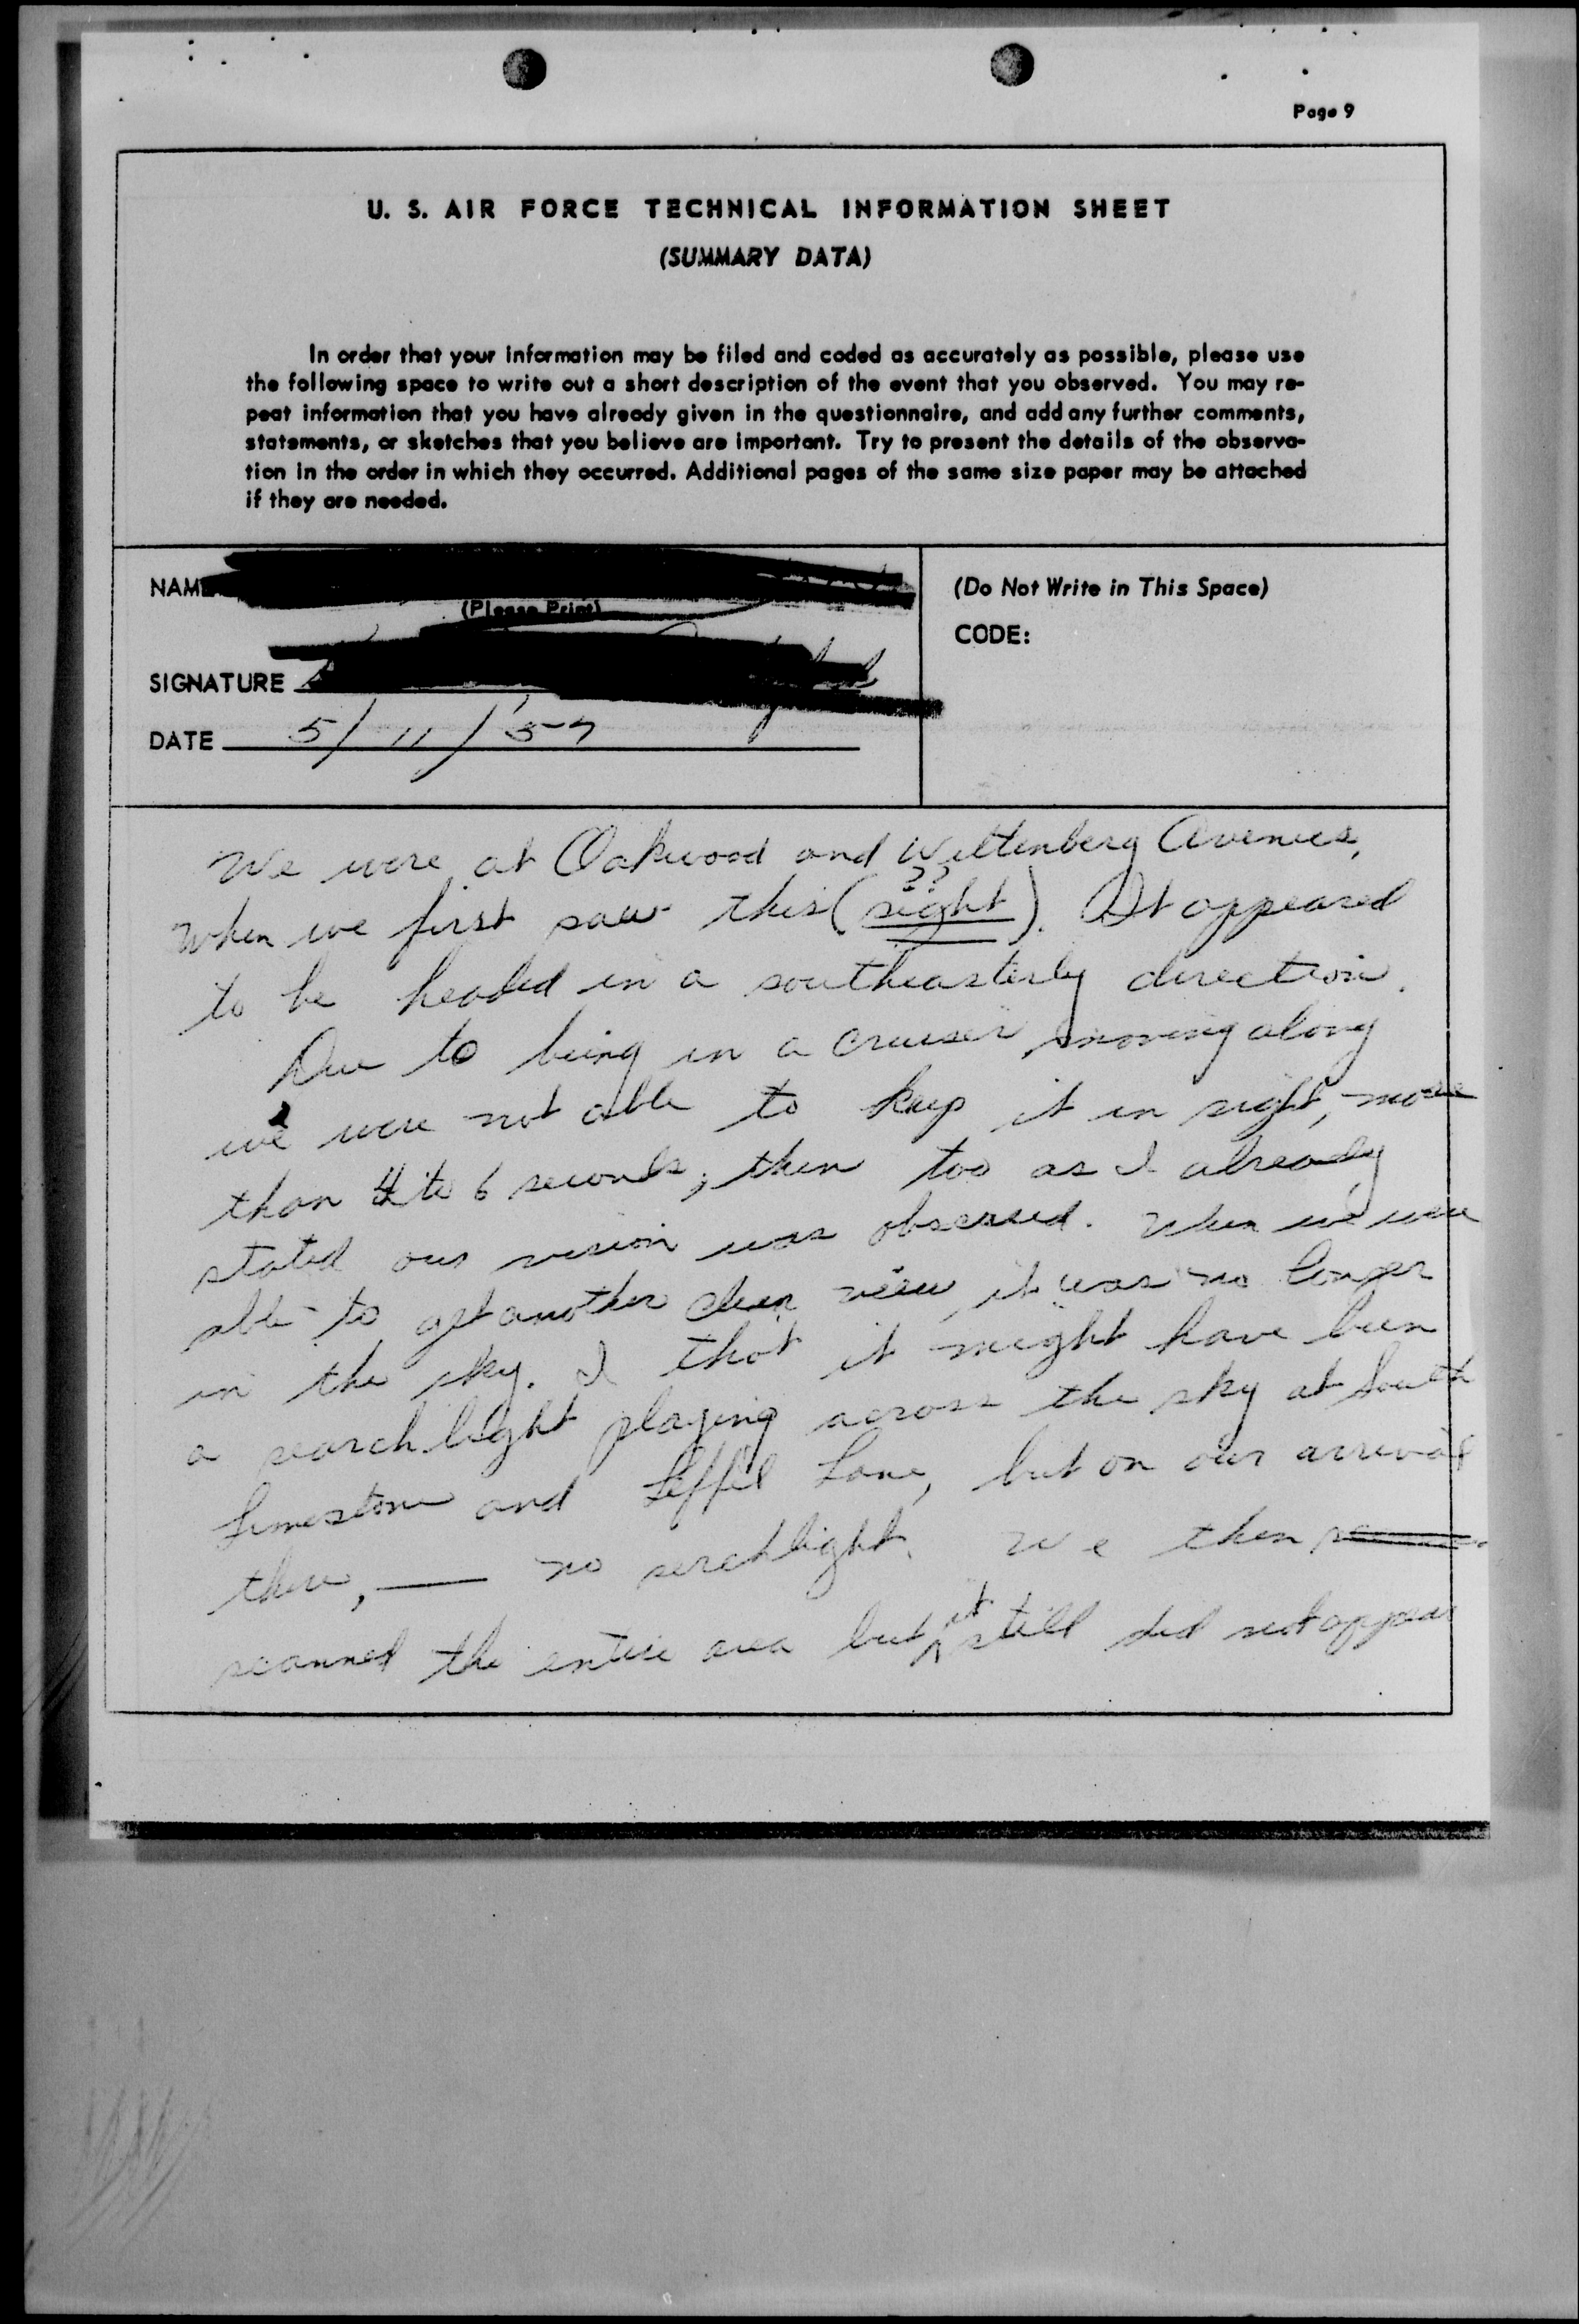 Page 9
U. S. AIR FORCE TECHNICAL INFORMATION SHEET
(SUMMARY DATA)
In order that your information may be filed and coded as accurately as possible, please use
the following space to write out a short description of the event that you observed. You may re-
peat information that you have already given in the questionnaire, and add any further comments,
statements, or sketches that you believe are important. Try to present the details of the observa-
tion in the order in which they occurred. Additional pages of the same size paper may be attached
if they are needed.
NAME
(Please Print)
(Do Not Write in This Space)
CODE:
SIGNATURE
DATE 5/11/'57
We were at Oakwood and Wittenberg Avenues,
??
when we first saw this (sight). It appeared
to be headed in a southeasterly direction.
Due to being in a cruiser, moving along
we were not able to keep it in sight, more
than 4 to 6 seconds, then too as I already
stated our vision was obscured. When we were
able to get another clear view, it was no longer
in the sky. I thot it might have been
a search light playing across the sky at South
Limestone and Leffel Lane, but on our arrival
there, — no serchlight. We then
scanned the entire area but it still did not appear